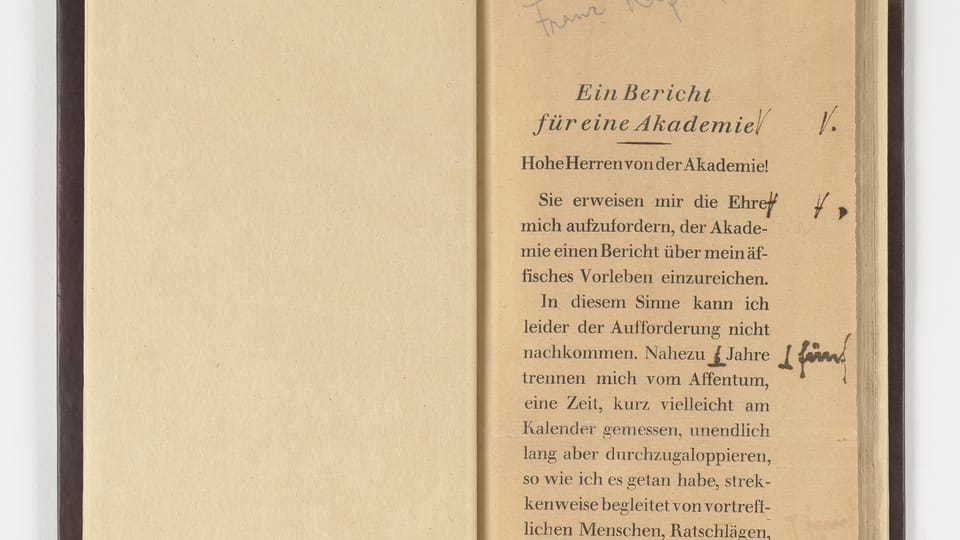 Franz
Ein Bericht
für eine Akademie V V.
Hohe Herren von der Akademie!
Sie erweisen mir die Ehre
mich aufzufordern, der Akade-
mie einen Bericht über mein äf-
fisches Vorleben einzureichen.
In diesem Sinne kann ich
leider der Aufforderung nicht
nachkommen. Nahezu Jahre fünf
trennen mich vom Affentum,
eine Zeit, kurz vielleicht am
Kalender gemessen, unendlich
lang aber durchzugaloppieren,
so wie ich es getan habe, strek-
kenweise begleitet von vortreff-
lichen Menschen, Ratschlägen,